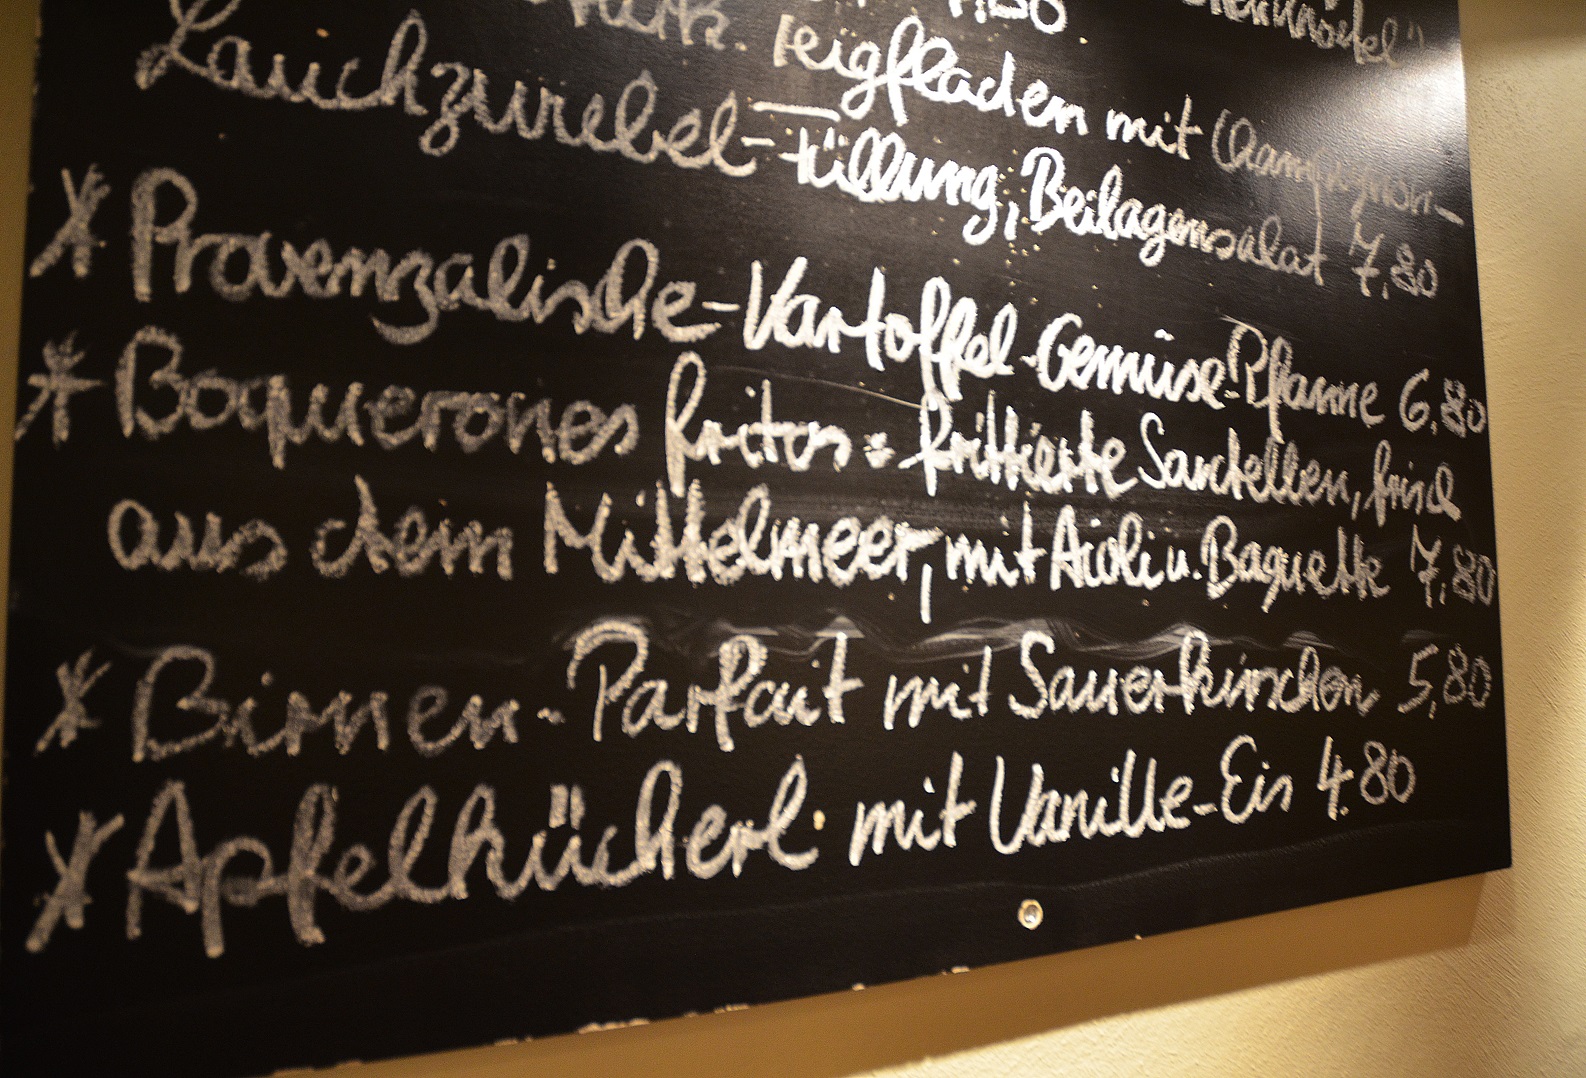 7,80
Teigfladen mit Champignon-
Lauchzwiebel-Füllung, Beilagensalat 7,80
* Provenzalische-Kartoffel-Gemüse-Pfanne 6,80
* Boquerones fritos = frittierte Sardellen, frisch
aus dem Mittelmeer, mit Aioli u. Baguette 7,80
* Birnen-Parfait mit Sauerkirschen 5,80
* Apfelkücherl mit Vanille-Eis 4.80